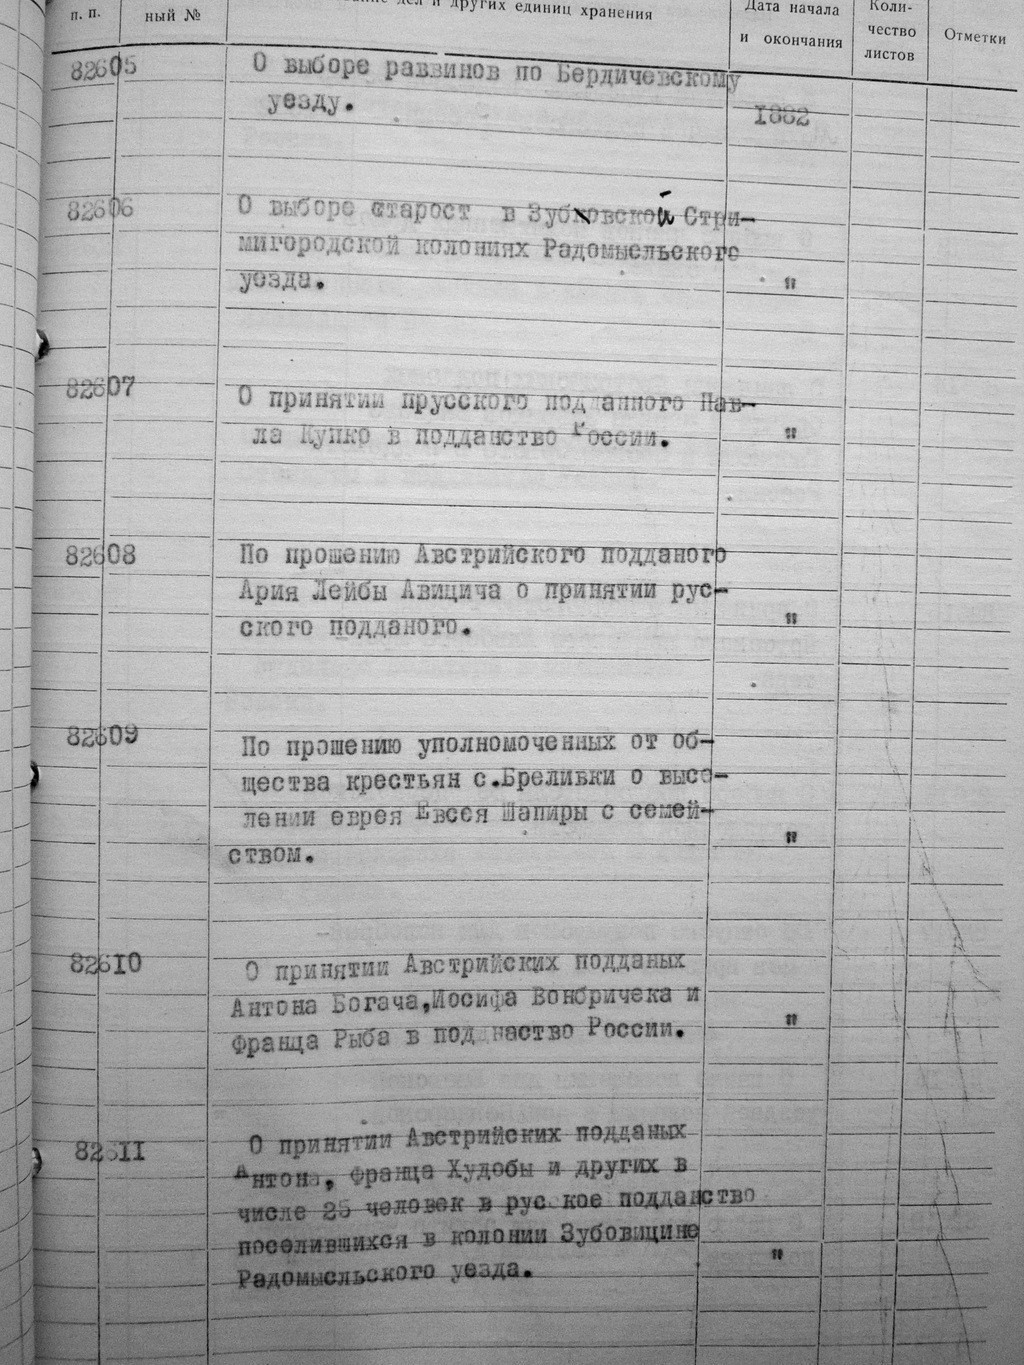 дел и других единиц хранения
Дата начала
и окончания
Коли-
чество
листов
Отметки
п. п.
ный №
82605
О выборе раввинов по Бердичевскому
уезду.
1882
82606
О выборе старост в Зубковской Стри-
мигородской колониях Радомысльского
уезда.
"
82607
О принятии прусского подданного Пав-
ла Купко в подданство России.
"
82608
По прошению Австрийского подданого
Ария Лейбы Авицича о принятии рус-
ского подданого.
"
82609
По прошению уполномоченных от об-
щества крестьян с.Бреливки о высе-
лении еврея Евсея Шапиры с семей-
ством.
"
82610
О принятии Австрийских подданых
Антона Богача,Иосифа Вонбричека и
Франца Рыба в подднаство России.
"
82611
О принятии Австрийских подданых
Антона, Франца Худобы и других в
числе 25 человек в рус кое подданство
поселившихся в колонии Зубовицине
Радомысльского уезда.
"